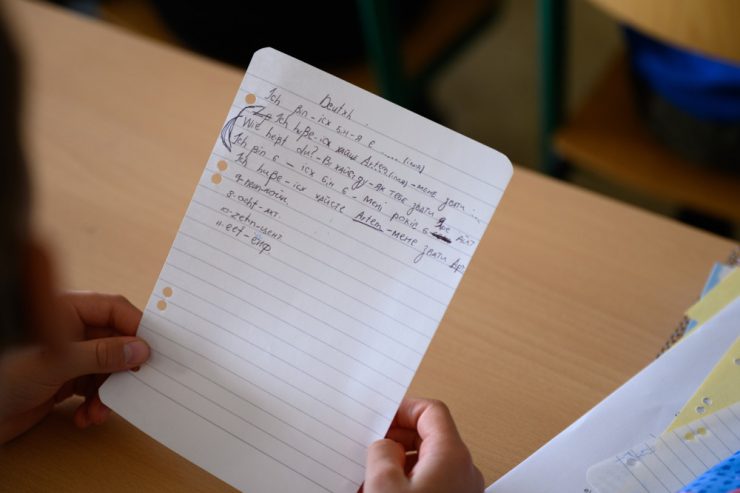 Deutxh
Ich βin - ісх бін - я є ..... (імя)
Ich huβe - ісх хайше Artem (імя) - мене звати ...
Wie heβt du? - Ві хайст ду - як тебе звати
Ich βin 6 - ісх бін 6 - мені років 6
Ich huβe - ісх хайсте Artem - мене звати Арт
9-
8-acht - ахт
10-zehn - цеен
11-eef - енф